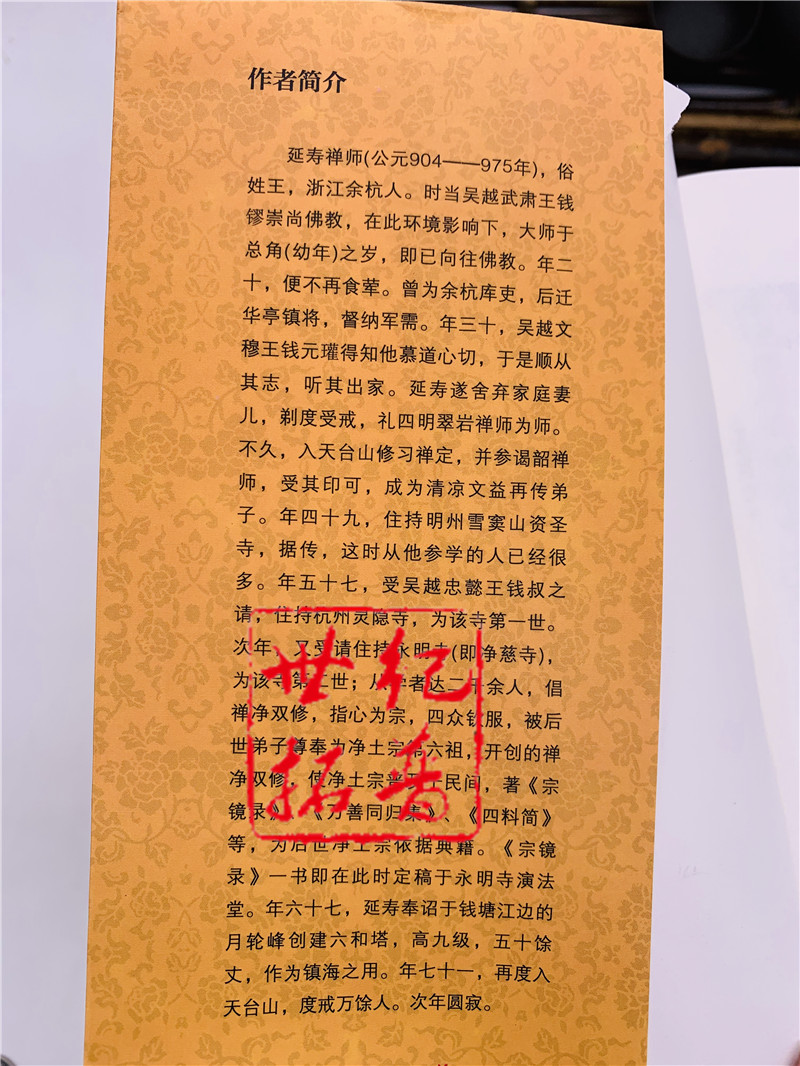 作者简介
延寿禅师(公元904——975年)，俗
姓王，浙江余杭人。时当吴越武肃王钱
镠崇尚佛教，在此环境影响下，大师于
总角(幼年)之岁，即已向往佛教。年二
十，便不再食荤。曾为余杭库吏，后迁
华亭镇将，督纳军需。年三十，吴越文
穆王钱元瓘得知他慕道心切，于是顺从
其志，听其出家。延寿遂舍弃家庭妻
儿，剃度受戒，礼四明翠岩禅师为师。
不久，入天台山修习禅定，并参谒韶禅
师，受其印可，成为清凉文益再传弟
子。年四十九，住持明州雪窦山资圣
寺，据传，这时从他参学的人已经很
多。年五十七，受吴越忠懿王钱叔之
请，住持杭州灵隐寺，为该寺第一世。
次年，又受请住持永明寺(即净慈寺)，
为该寺第二世；从学者达二千余人，倡
禅净双修，指心为宗，四众钦服，被后
世弟子尊奉为净土宗第六祖，开创的禅
净双修，使净土宗普及于民间，著《宗
镜录》、《万善同归集》、《四料简》
等，为后世净土宗依据典籍。《宗镜
录》一书即在此时定稿于永明寺演法
堂。年六十七，延寿奉诏于钱塘江边的
月轮峰创建六和塔，高九级，五十馀
丈，作为镇海之用。年七十一，再度入
天台山，度戒万馀人。次年圆寂。
世纪
拓普